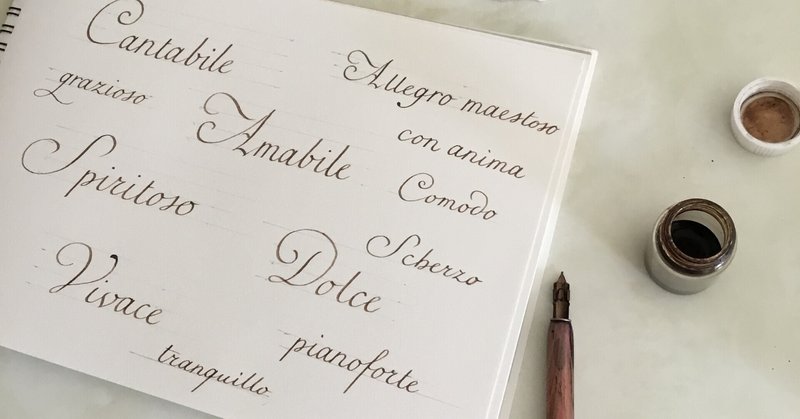 Cantabile
Allegro maestoso
grazioso
Amabile
con anima
Spiritoso
Comodo
Scherzo
Vivace
Dolce
tranquillo
pianoforte